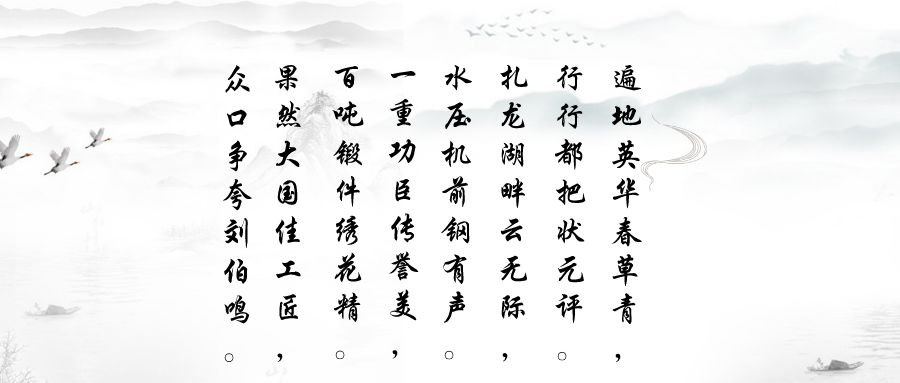 遍地英华春草青，
行行都把状元评。
扎龙湖畔云无际，
水压机前钢有声。
一重功臣传誉美，
百吨锻件绣花精。
果然大国佳工匠，
众口争夸刘伯鸣。